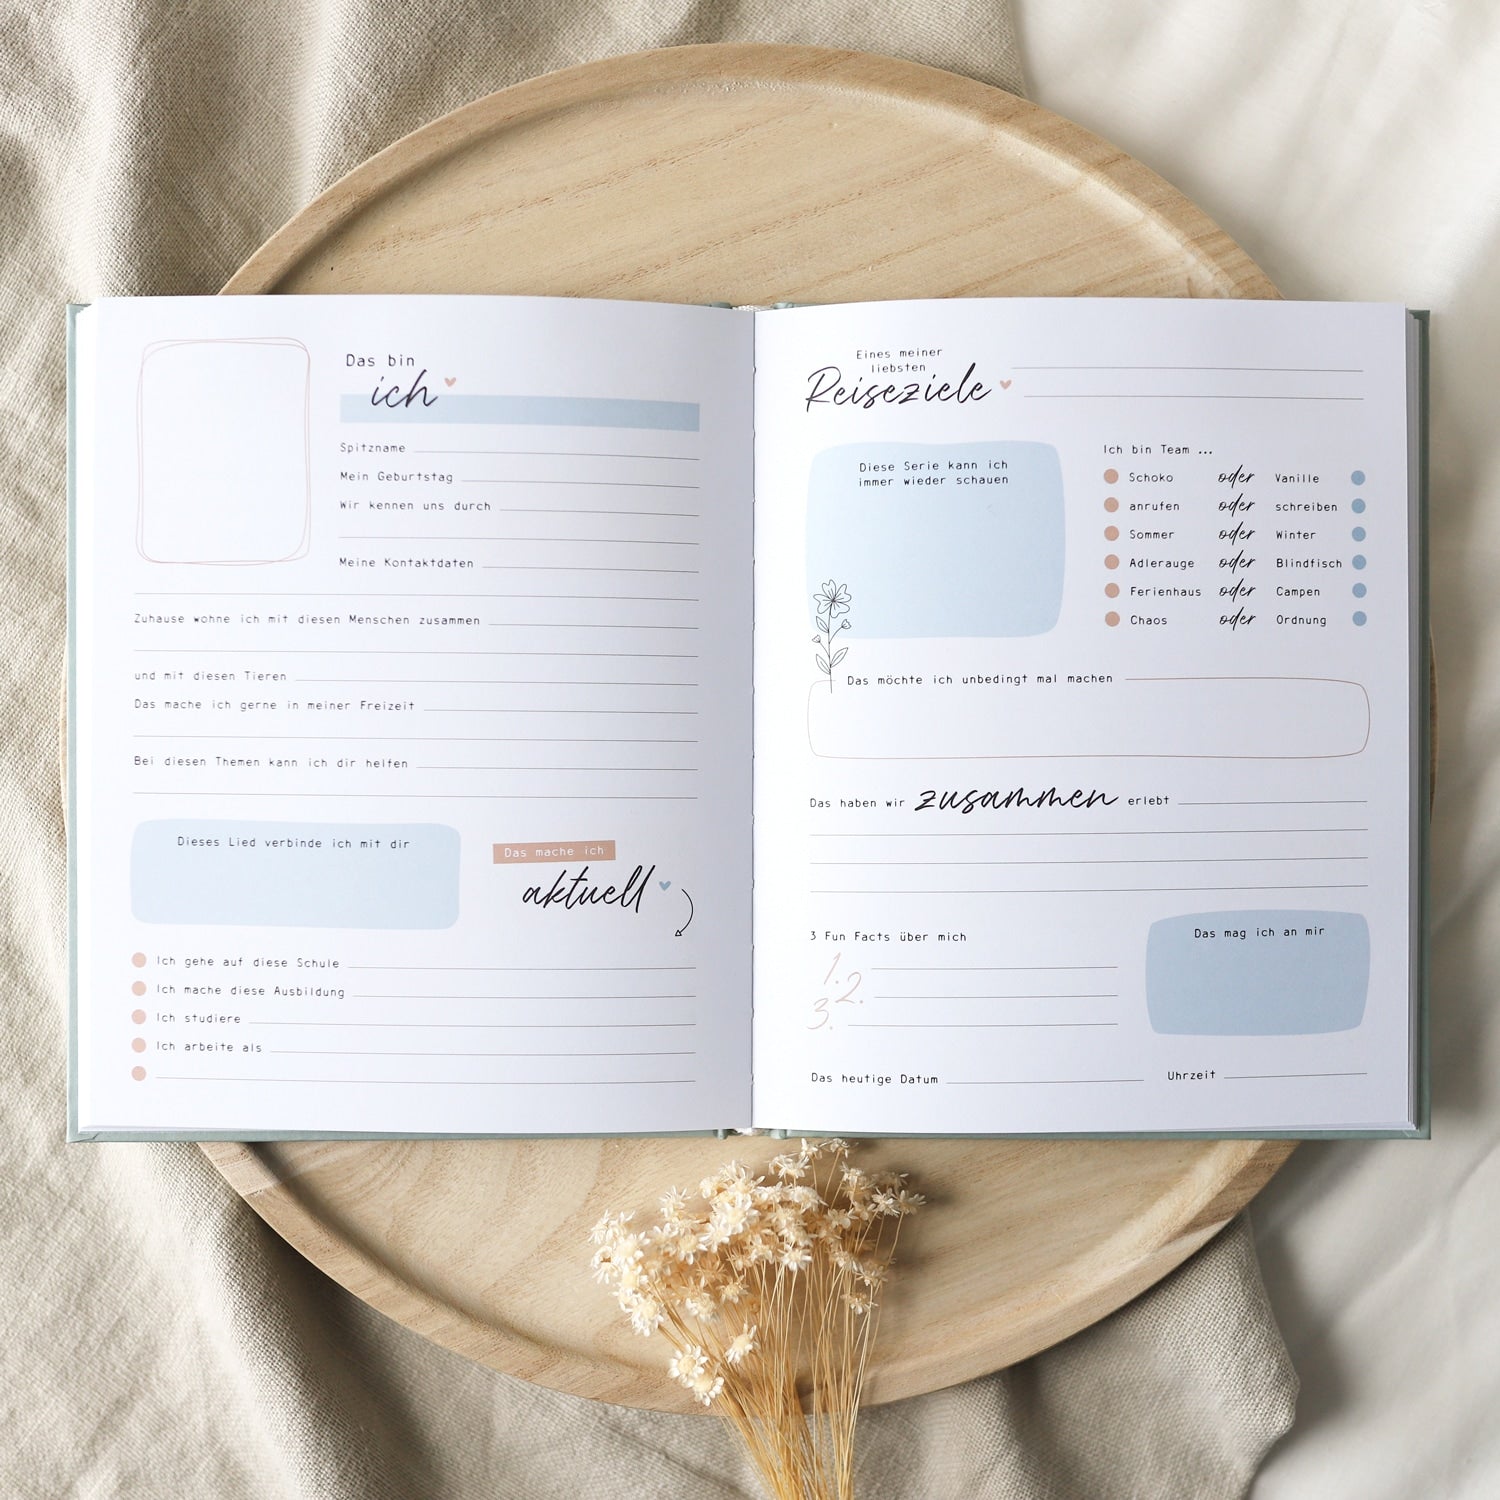 Das bin
ich
Spitzname
Mein Geburtstag
Wir kennen uns durch
Meine Kontaktdaten
Zuhause wohne ich mit diesen Menschen zusammen
und mit diesen Tieren
Das mache ich gerne in meiner Freizeit
Bei diesen Themen kann ich dir helfen
Dieses Lied verbinde ich mit dir
Das mache ich
aktuell
Ich gehe auf diese Schule
Ich mache diese Ausbildung
Ich studiere
Ich arbeite als
Eines meiner
liebsten
Reiseziele
Diese Serie kann ich
immer wieder schauen
Ich bin Team ...
Schoko oder Vanille
anrufen oder schreiben
Sommer oder Winter
Adlerauge oder Blindfisch
Ferienhaus oder Campen
Chaos oder Ordnung
Das möchte ich unbedingt mal machen
Das haben wir zusammen erlebt
3 Fun Facts über mich
1.
2.
3.
Das mag ich an mir
Das heutige Datum
Uhrzeit